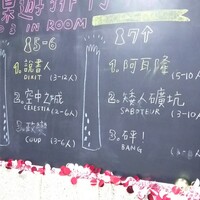 桌遊排行
S IN ROOM
85-6
87个
1. 說書人
DIXIT (3-12人)
1. 阿瓦隆
(5-10人
2. 空中之城
CELESTIA (2-6人)
2. 矮人礦坑
SABOTEUR (3-10人
3.
COUP (3-6人)
3. 砰！
BANG